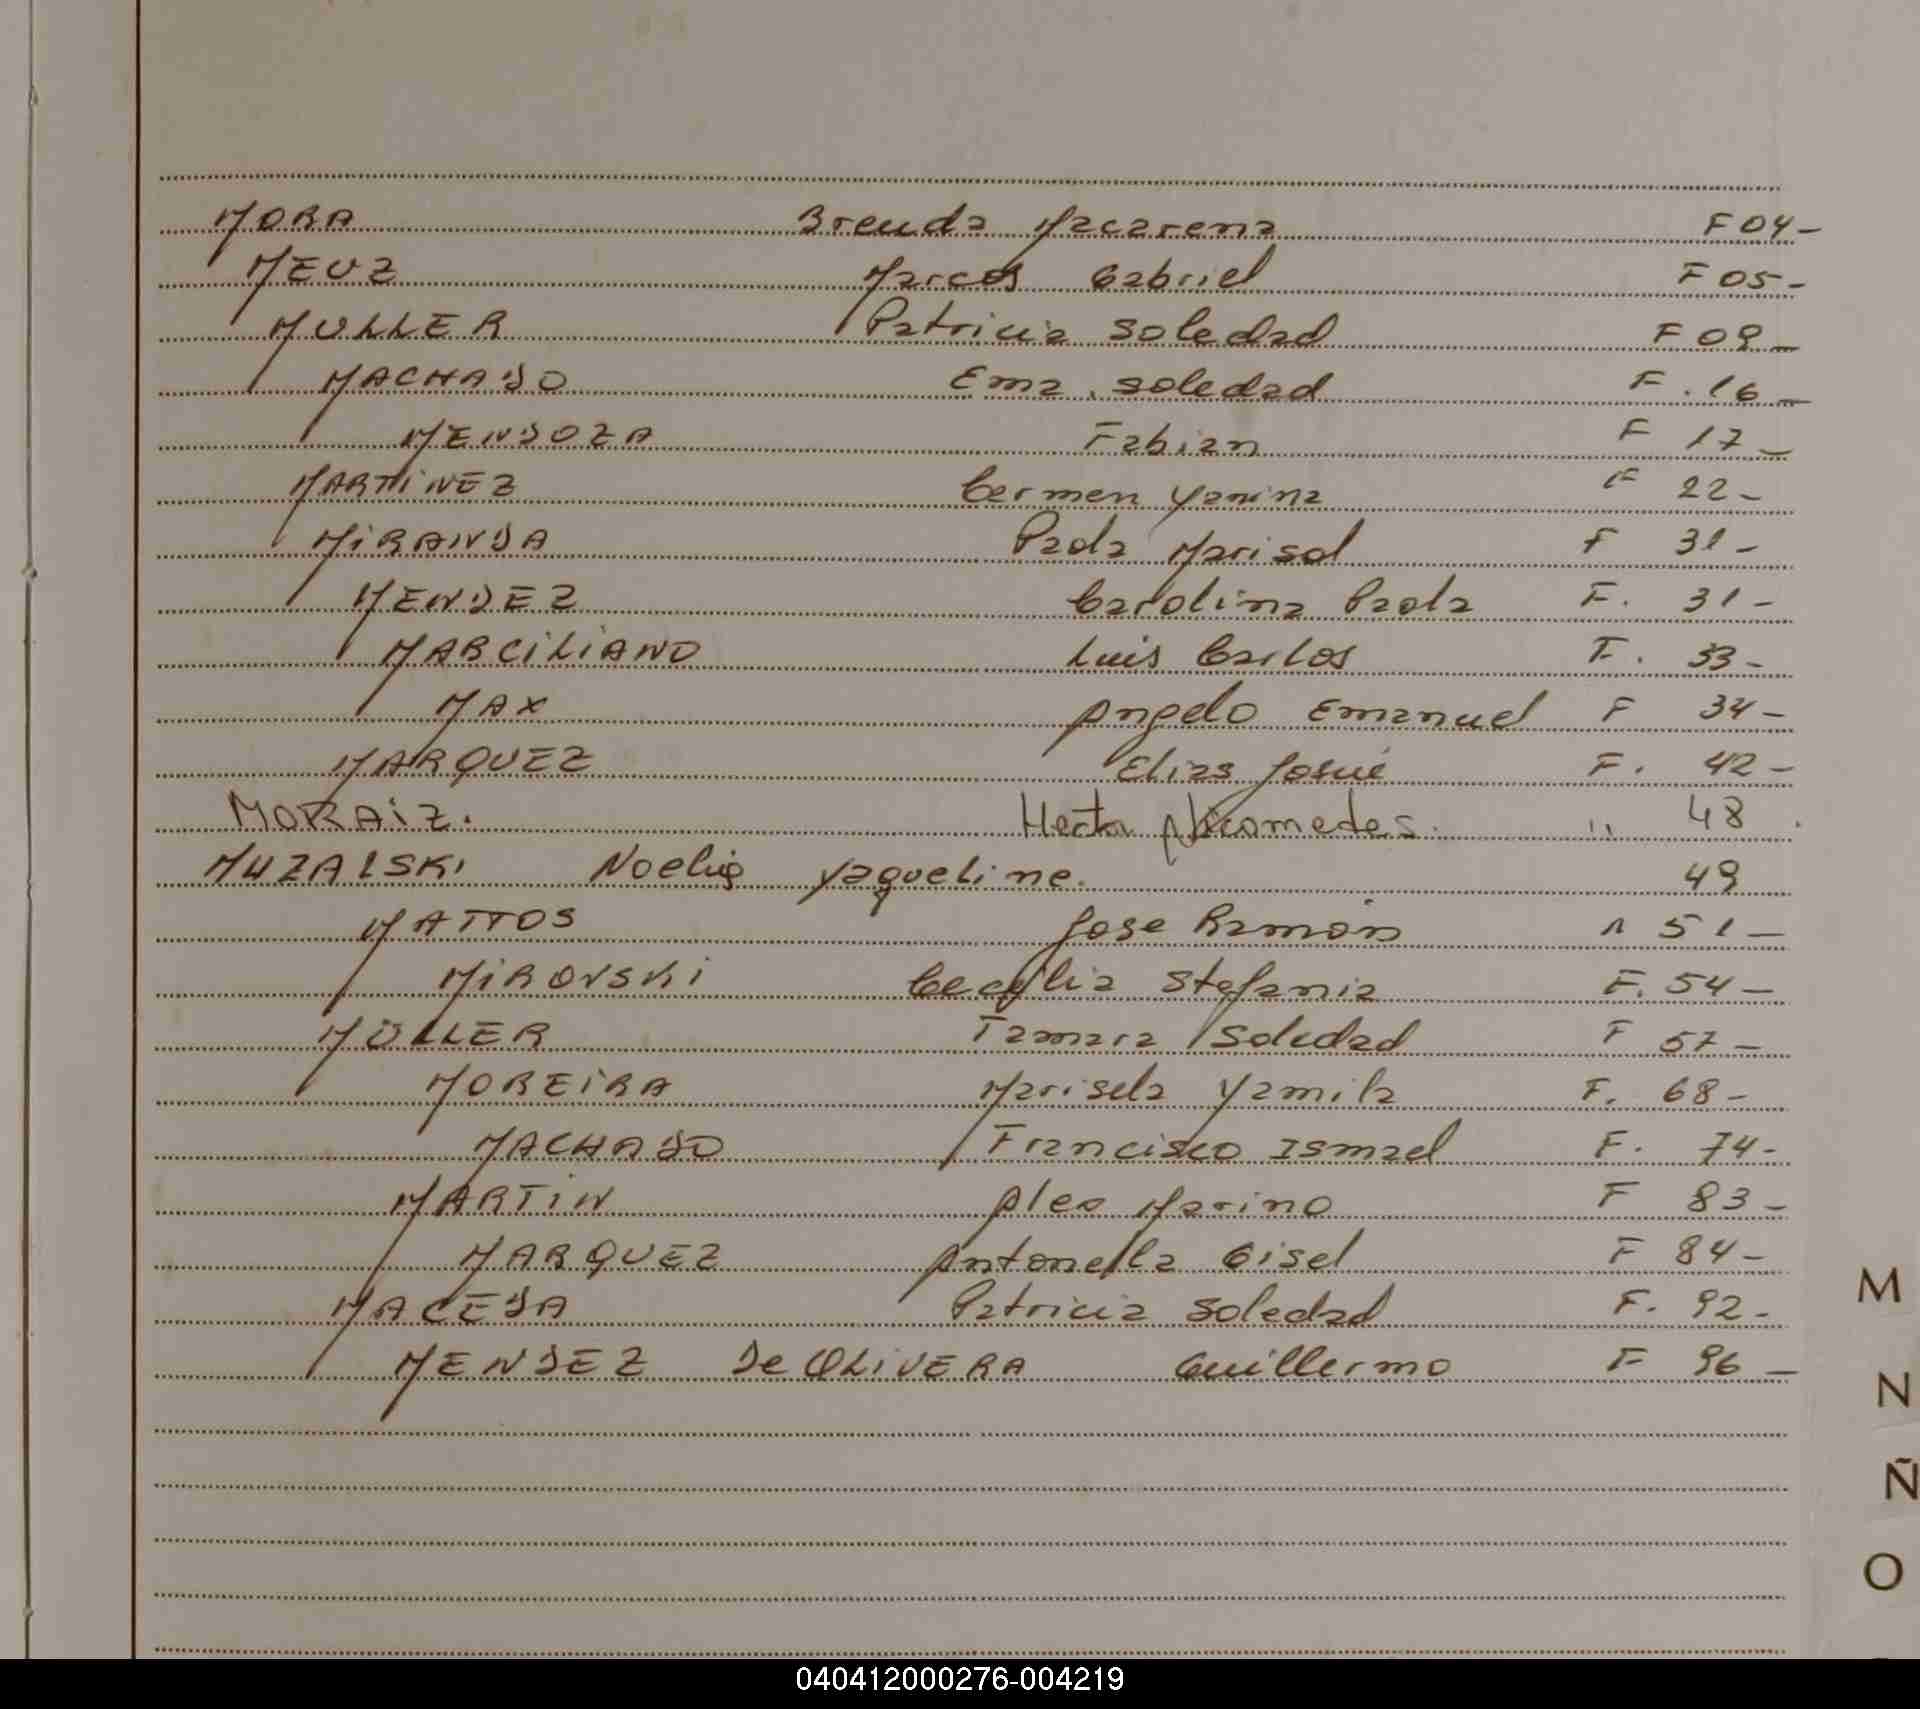 MORA Brenda Macarena F 04-
MEUZ Marcos Gabriel F 05-
MULLER Patricia Soledad F 09-
MACHADO Ema Soledad F. 16-
MENDOZA Fabian F 17-
MARTiNEZ Carmen Yanina F 22-
MiRANDA Paola Marisol F 31-
MENDEZ Carolina Paola F. 31-
MARCiLiANO Luis Carlos F. 33-
MAX Angelo Emanuel F 34-
MARQUEZ Elias Josué F. 42-
MORAiZ. Hector Nicomedes. " 48
MUZALSKi Noelia Yaqueline. 49
MATTOS Jose Ramón " 51-
MiROVSKi Cecilia Stefania F. 54-
MÜLLER Tamara Soledad F 57-
MOREiRA Marisela Yamila F. 68-
MACHADO Francisco Ismael F. 74-
MARTiN Alex Marino F 83-
MARQUEZ Antonella Gisel F 84-
MACEDA Patricia Soledad F. 92-
MENDEZ De OLiVERA Guillermo F 96-
M
N
Ñ
O
040412000276-004219